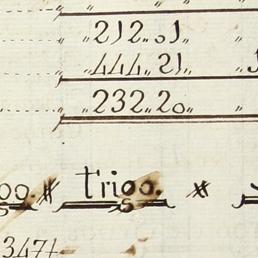 "212"01"
"444"21"
"232"20" "
trigo.
347